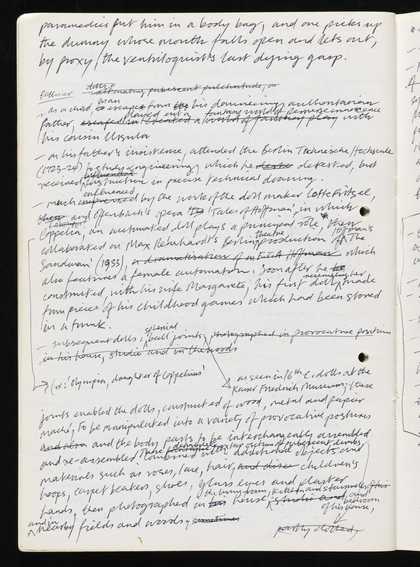 paramedics put him in a body bag, and one picks up
the dummy whose mouth falls open and lets out,
by proxy, the ventriloquist's last dying gasp.
Bellmer dolls
pubescent pulchritude, or
- as a child, to escape from his domineering authoritarian
father, played out a fantasy world of demonic innocence
escaped into / created a world of fantasy play with
his cousin Ursula
- on his father's insistence, attended the Berlin Technische Hochschule
(1923-24) to study engineering, which he detested, but
received instruction in precise technical drawing.
- much influenced by the work of the doll maker Lotte Pritzel,
and Offenbach's opera 'Tales of Hoffman', in which
Coppelia, an automated doll plays a principal role, then
collaborated on Max Reinhardt's theatre production of Hoffman's 'The
Sandman' (1933), a dramatization of which
also featured a female automaton. Soon after he
constructed, with his wife Margarete, his first doll, made
from pieces of his childhood games which had been stored
in a trunk.
- subsequent dolls, special ball joints, photographed in provocative positions
in his house, studio and in the woods
(i.e. Olympia, daughter of Coppelius)
- as seen in 16th c. dolls at the
Kaiser Friedrich Museum; these
joints enabled the dolls, constructed of wood, metal and paper
maché, to be manipulated into a variety of provocative postures
and the body parts to be interchangeably assembled
and re-assembled, combined with additional objects and
materials such as roses, lace, hair, children's
hoops, carpet beaters, shoes, glass eyes and plaster
hands, then photographed in the living room, kitchen and stairwells of his
house, studio and bedroom
of his house,
and in nearby fields and woods, sometimes
partly clothed